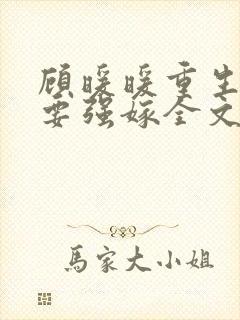 顾暖暖重生
要强嫁全文
馬家大小姐